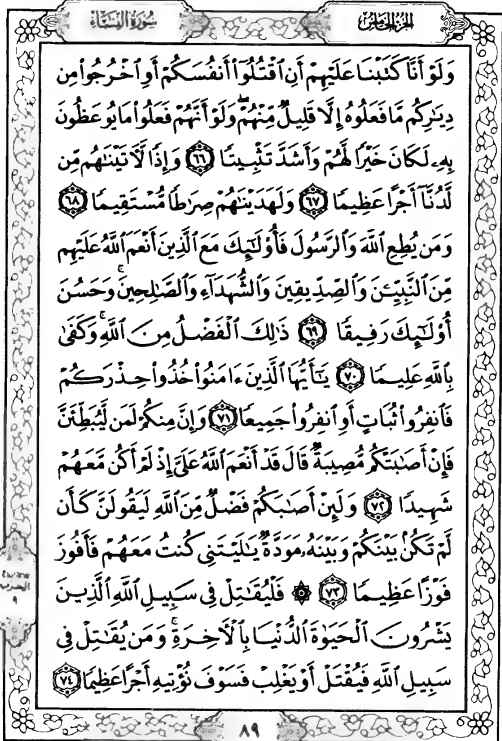 الجزء الخامس سورة النساء
وَلَوْ أَنَّا كَتَبْنَا عَلَيْهِمْ أَنِ ٱقْتُلُوٓا۟ أَنفُسَكُمْ أَوِ ٱخْرُجُوا۟ مِن
دِيَٰرِكُم مَّا فَعَلُوهُ إِلَّا قَلِيلٌ مِّنْهُمْ ۖ وَلَوْ أَنَّهُمْ فَعَلُوا۟ مَا يُوعَظُونَ
بِهِۦ لَكَانَ خَيْرًا لَّهُمْ وَأَشَدَّ تَثْبِيتًا ٦٦ وَإِذًا لَّءَاتَيْنَٰهُم مِّن
لَّدُنَّآ أَجْرًا عَظِيمًا ٦٧ وَلَهَدَيْنَٰهُمْ صِرَٰطًا مُّسْتَقِيمًا ٦٨
وَمَن يُطِعِ ٱللَّهَ وَٱلرَّسُولَ فَأُو۟لَٰٓئِكَ مَعَ ٱلَّذِينَ أَنْعَمَ ٱللَّهُ عَلَيْهِم
مِّنَ ٱلنَّبِيِّـۧنَ وَٱلصِّدِّيقِينَ وَٱلشُّهَدَآءِ وَٱلصَّٰلِحِينَ ۚ وَحَسُنَ
أُو۟لَٰٓئِكَ رَفِيقًا ٦٩ ذَٰلِكَ ٱلْفَضْلُ مِنَ ٱللَّهِ ۚ وَكَفَىٰ
بِٱللَّهِ عَلِيمًا ٧٠ يَٰٓأَيُّهَا ٱلَّذِينَ ءَامَنُوا۟ خُذُوا۟ حِذْرَكُمْ
فَٱنفِرُوا۟ ثُبَاتٍ أَوِ ٱنفِرُوا۟ جَمِيعًا ٧١ وَإِنَّ مِنكُمْ لَمَن لَّيُبَطِّئَنَّ
فَإِنْ أَصَٰبَتْكُم مُّصِيبَةٌ قَالَ قَدْ أَنْعَمَ ٱللَّهُ عَلَىَّ إِذْ لَمْ أَكُن مَّعَهُمْ
شَهِيدًا ٧٢ وَلَئِنْ أَصَٰبَكُمْ فَضْلٌ مِّنَ ٱللَّهِ لَيَقُولَنَّ كَأَن
لَّمْ تَكُنۢ بَيْنَكُمْ وَبَيْنَهُۥ مَوَدَّةٌ يَٰلَيْتَنِى كُنتُ مَعَهُمْ فَأَفُوزَ
فَوْزًا عَظِيمًا ٧٣ ۞ فَلْيُقَٰتِلْ فِى سَبِيلِ ٱللَّهِ ٱلَّذِينَ
يَشْرُونَ ٱلْحَيَوٰةَ ٱلدُّنْيَا بِٱلْءَاخِرَةِ ۚ وَمَن يُقَٰتِلْ فِى
سَبِيلِ ٱللَّهِ فَيُقْتَلْ أَوْ يَغْلِبْ فَسَوْفَ نُؤْتِيهِ أَجْرًا عَظِيمًا ٧٤
الحزب
٩
٨٩